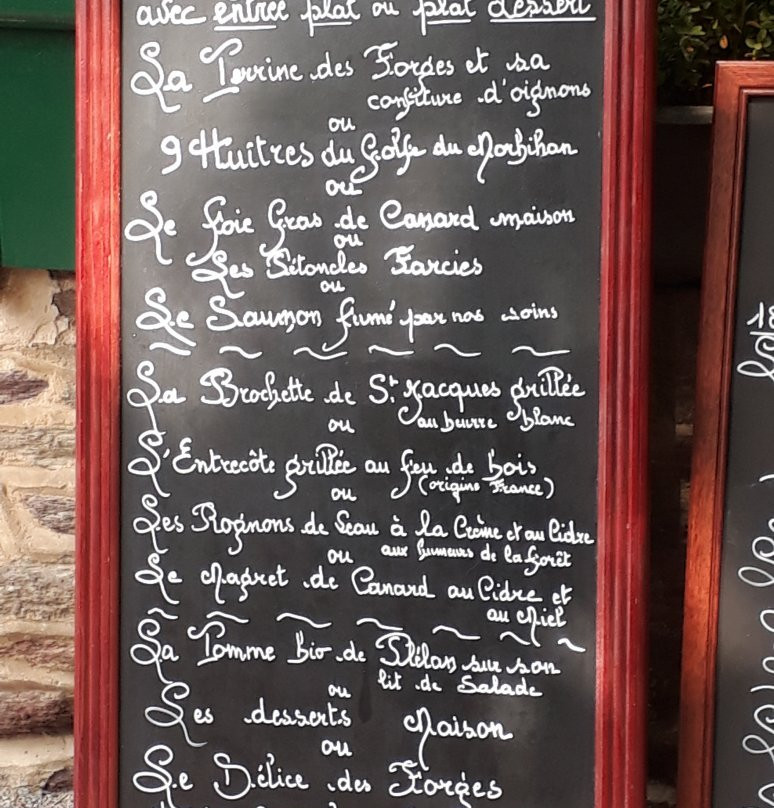 avec entrée plat ou plat dessert
La Terrine des Forges et sa
confiture d'oignons
ou
9 Huîtres du Golfe du Morbihan
ou
Le foie Gras de Canard maison
ou
Les Pétoncles Farcies
ou
Le Saumon fumé par nos soins
La Brochette de St Jacques grillée
au beurre blanc
ou
L'Entrecôte grillée au feu de bois
(origine France)
ou
Les Rognons de Veau à la Crème et au Cidre
aux fumeurs de la forêt
ou
Le Magret de Canard au Cidre et
au Miel
La Tomme Bio de Plélan sur son
lit de Salade
ou
Les desserts Maison
ou
Le Délice des Forges